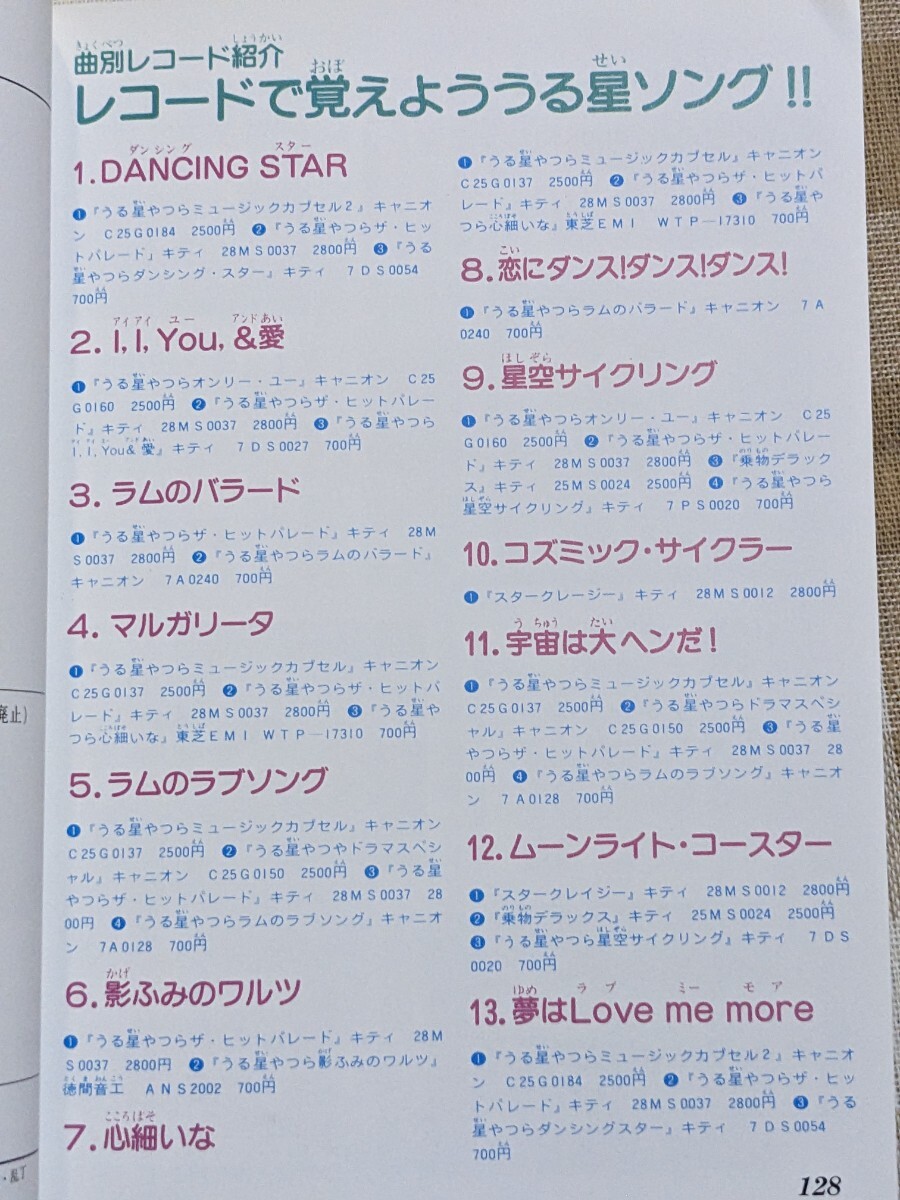 曲別レコード紹介
レコードで覚えよううる星ソング!!
1.DANCING STAR
❶『うる星やつらミュージックカプセル2』キャニオ
ン C25G0184 2500円 ❷『うる星やつらザ・ヒッ
トパレード』キティ 28MS0037 2800円 ❸『うる
星やつらダンシング・スター』キティ 7DS0054
700円
2.I,I,You,&愛
❶『うる星やつらオンリー・ユー』キャニオン C25
G0160 2500円 ❷『うる星やつらザ・ヒットパレー
ド』キティ 28MS0037 2800円 ❸『うる星やつら
I,I,You&愛』キティ 7DS0027 700円
3.ラムのバラード
❶『うる星やつらザ・ヒットパレード』キティ 28M
S0037 2800円 ❷『うる星やつらラムのバラード』
キャニオン 7A0240 700円
4.マルガリータ
❶『うる星やつらミュージックカプセル』キャニオン
C25G0137 2500円 ❷『うる星やつらザ・ヒットパ
レード』キティ 28MS0037 2800円 ❸『うる星や
つら心細いな』東芝EMI WTP—17310 700円
5.ラムのラブソング
❶『うる星やつらミュージックカプセル』キャニオン
C25G0137 2500円 ❷『うる星やつやドラマスペシ
ャル』キャニオン C25G0150 2500円 ❸『うる星
やつらザ・ヒットパレード』キティ 28MS0037 28
00円 ❹『うる星やつらラムのラブソング』キャニオ
ン 7A0128 700円
6.影ふみのワルツ
❶『うる星やつらザ・ヒットパレード』キティ 28M
S0037 2800円 ❷『うる星やつら影ふみのワルツ』
徳間音工 ANS2002 700円
7.心細いな
❶『うる星やつらミュージックカプセル』キャニオン
C25G0137 2500円 ❷『うる星やつらザ・ヒットパ
レード』キティ 28MS0037 2800円 ❸『うる星や
つら心細いな』東芝EMI WTP—17310 700円
8.恋にダンス!ダンス!ダンス!
❶『うる星やつらラムのバラード』キャニオン 7A
0240 700円
9.星空サイクリング
❶『うる星やつらオンリー・ユー』キャニオン C25
G0160 2500円 ❷『うる星やつらザ・ヒットパレー
ド』キティ 28MS0037 2800円 ❸『乗物デラック
ス』キティ 25MS0024 2500円 ❹『うる星やつら
星空サイクリング』キティ 7PS0020 700円
10.コズミック・サイクラー
❶『スタークレージー』キティ 28MS0012 2800円
11.宇宙は大ヘンだ!
❶『うる星やつらミュージックカプセル』キャニオン
C25G0137 2500円 ❷『うる星やつらドラマスペシ
ャル』キャニオン C25G0150 2500円 ❸『うる星
やつらザ・ヒットパレード』キティ 28MS0037 28
00円 ❹『うる星やつらラムのラブソング』キャニオ
ン 7A0128 700円
12.ムーンライト・コースター
❶『スタークレイジー』キティ 28MS0012 2800円
❷『乗物デラックス』キティ 25MS0024 2500円
❸『うる星やつら星空サイクリング』キティ 7DS
0020 700円
13.夢はLove me more
❶『うる星やつらミュージックカプセル2』キャニオ
ン C25G0184 2500円 ❷『うる星やつらザ・ヒッ
トパレード』キティ 28MS0037 2800円 ❸『うる
星やつらダンシングスター』キティ 7DS0054
700円
128
廃止)
・乱丁